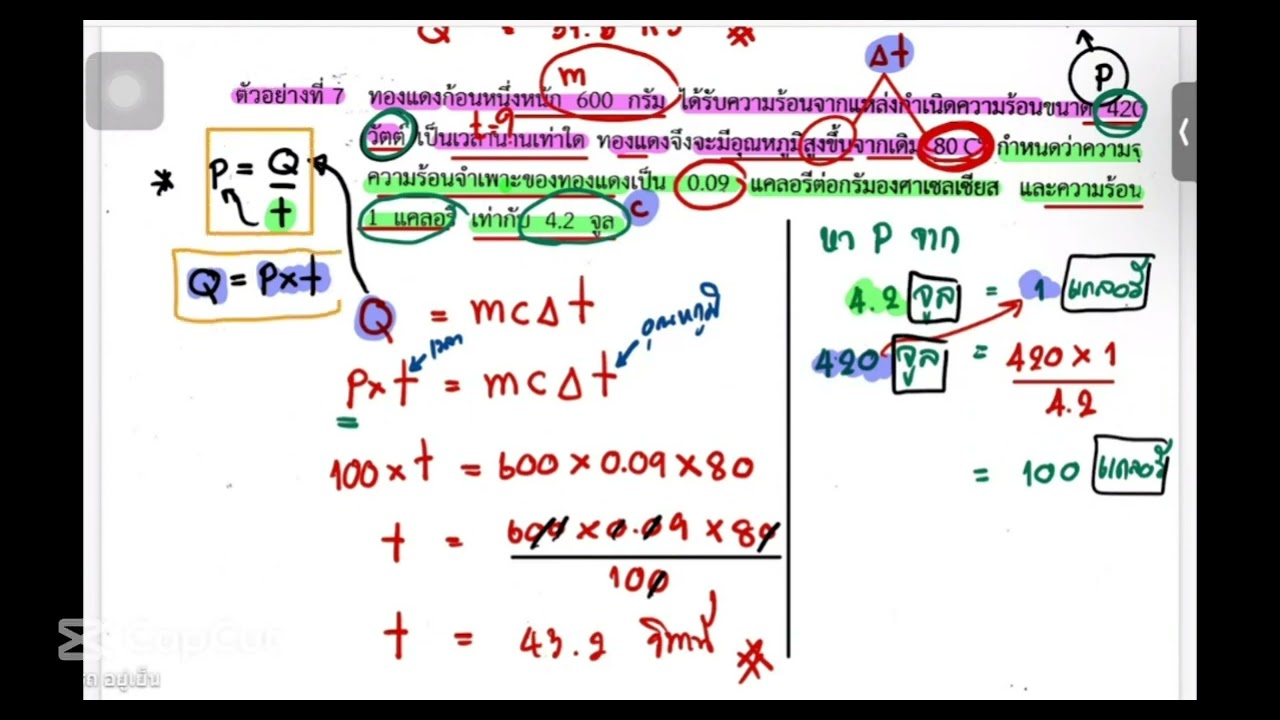 m
Δt
P
ตัวอย่างที่ 7 ทองแดงก้อนหนึ่งหนัก 600 กรัม ได้รับความร้อนจากแหล่งกำเนิดความร้อนขนาด 420
t=?
วัตต์ เป็นเวลานานเท่าใด ทองแดงจึงจะมีอุณหภูมิสูงขึ้นจากเดิม 80 C° กำหนดว่าความจุ
ความร้อนจำเพาะของทองแดงเป็น 0.09 แคลอรีต่อกรัมองศาเซลเซียส และความร้อน
1 แคลอรี เท่ากับ 4.2 จูล c
* P = Q
t
Q = P×t
Q = mcΔt
เวลา อุณหภูมิ
P×t = mcΔt
100×t = 600×0.09×80
t = 600×0.09×80
100
t = 43.2 วินาที *
หา P จาก
4.2 จูล = 1 แคลอรี
420 จูล = 420×1
4.2
= 100 แคลอรี
CapCut
อยู่เย็น